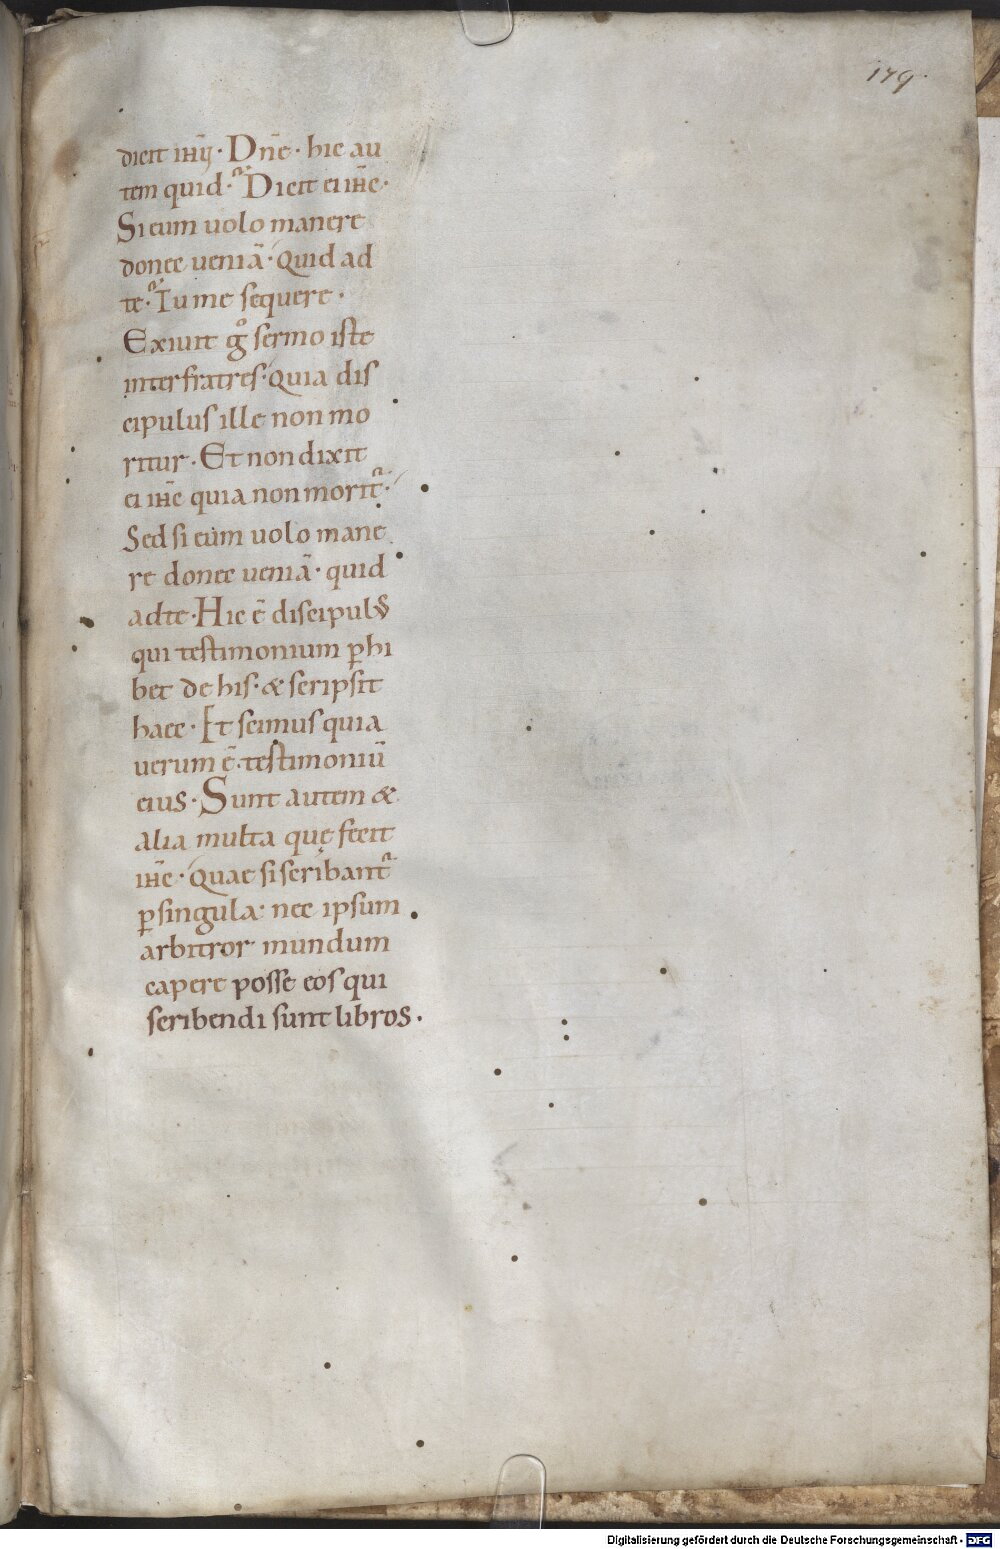 179.
dicit ihu̅. Dn̅e. hic au
tem quid. Dicit ei ih̅c.
Si eum uolo manere
donec ueniā. Quid ad
te. Tu me sequere.
Exiuit gͦ sermo iste
inter fratres. Quia dis
cipulus ille non mo
ritur. Et non dixit
ei ih̅c quia non morit᷑.
Sed si eum uolo mane
re donec ueniā. quid
ad te. Hic ē discipulus
qui testimonium ꝑhi
bet de his. & scripsit
haec. Et scimus quia
uerum ē. testimoniū
eius. Sunt autem &
alia multa quę fecit
ih̅c. Quae si scribant᷑
ꝑ singula. nec ipsum
arbitror mundum
capere posse eos qui
scribendi sunt libros.
Digitalisierung gefördert durch die Deutsche Forschungsgemeinschaft - DFG